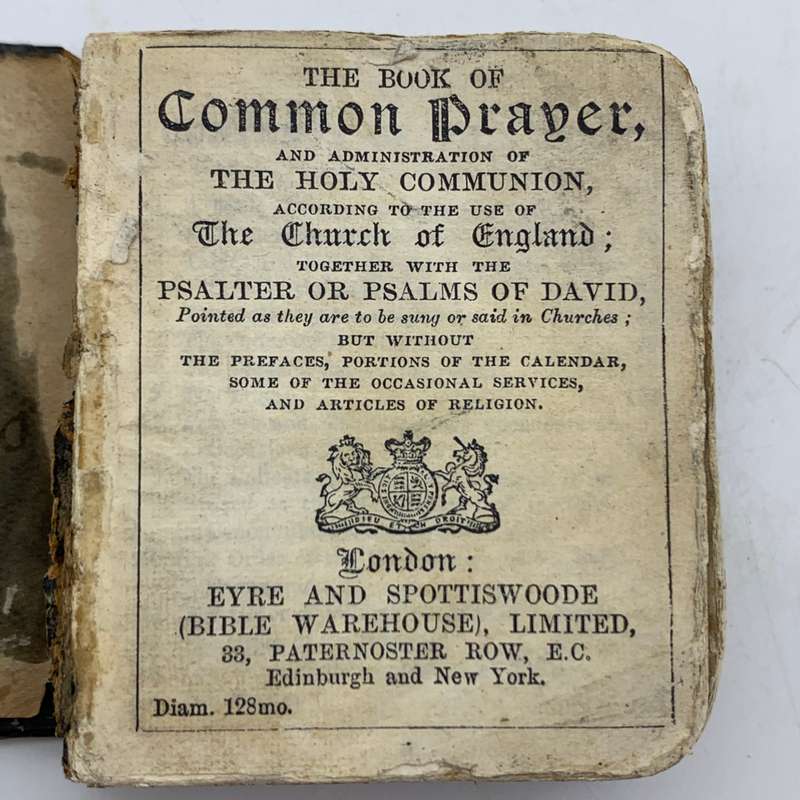 THE BOOK OF
Common Prayer,
AND ADMINISTRATION OF
THE HOLY COMMUNION,
ACCORDING TO THE USE OF
The Church of England;
TOGETHER WITH THE
PSALTER OR PSALMS OF DAVID,
Pointed as they are to be sung or said in Churches;
BUT WITHOUT
THE PREFACES, PORTIONS OF THE CALENDAR,
SOME OF THE OCCASIONAL SERVICES,
AND ARTICLES OF RELIGION.
DIEU ET MON DROIT
London:
EYRE AND SPOTTISWOODE
(BIBLE WAREHOUSE), LIMITED,
33, PATERNOSTER ROW, E.C.
Edinburgh and New York.
Diam. 128mo.